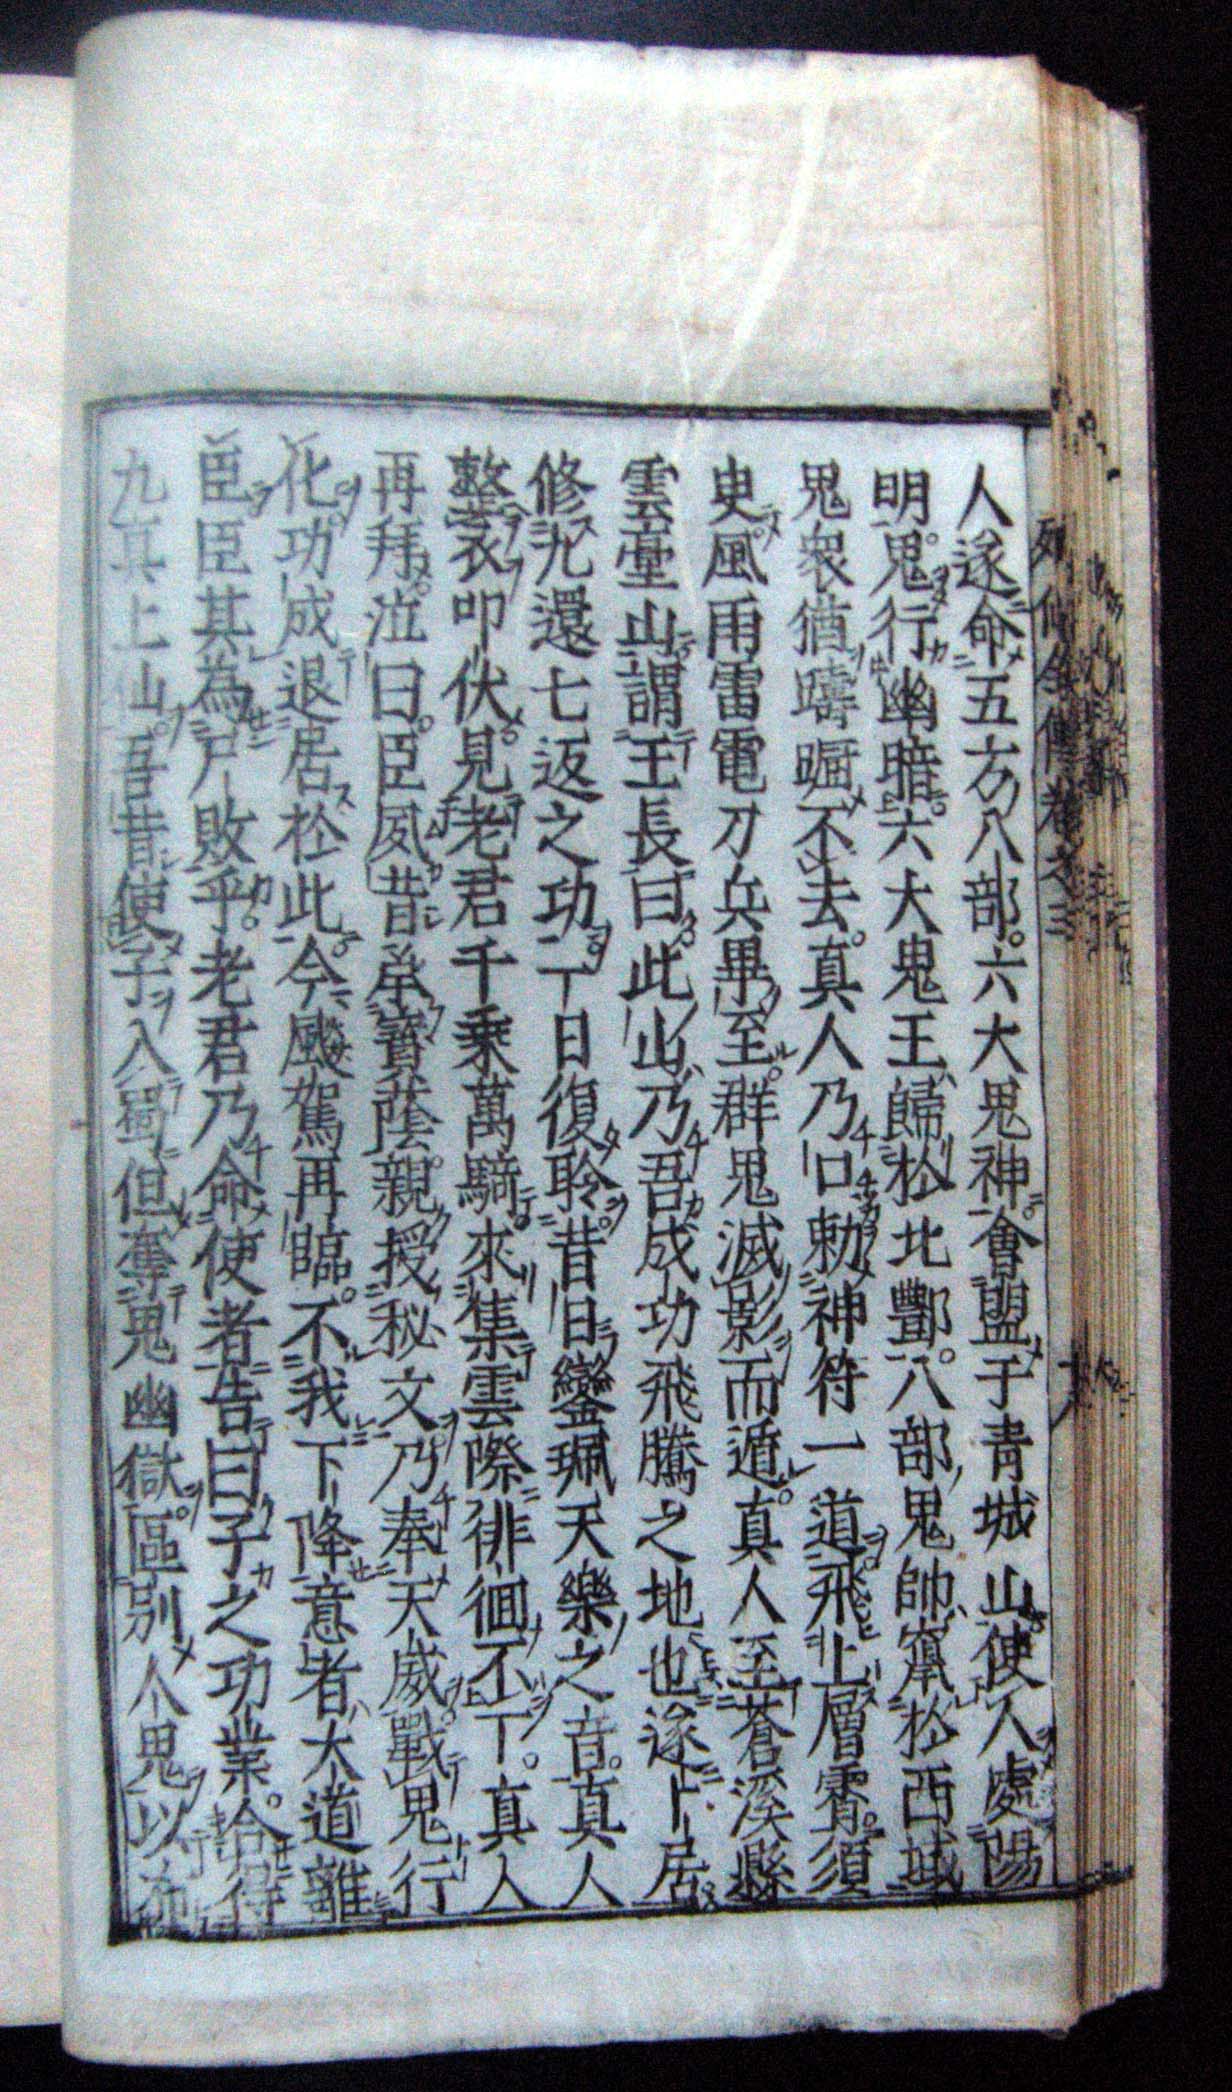 人遂命五方八部六大鬼神會盟于青城山使人處陽
明鬼行幽暗六大鬼王歸於北酆八部鬼帥竄於西域
鬼衆猶躊躇不去真人乃口勅神符一道飛上層霄須
史風雨雷電刀兵畢至群鬼滅影而遁真人至蒼溪縣
雲臺山謂王長曰此山乃吾成功飛騰之地也遂卜居
修九還七返之功一日復聆昔日鑾珮天樂之音真人
整衣叩伏見老君千乘萬騎來集雲際徘徊不下真人
再拜泣曰臣夙昔承寶蔭親授秘文乃奉天威戰鬼行
化功成退居於此今飈駕再臨不我下降意者大道離
臣臣其為尸敗乎老君乃命使者告曰子之功業合得
九真上仙吾昔使子入蜀但奪鬼幽獄區別人鬼以布
列仙全傳卷之三